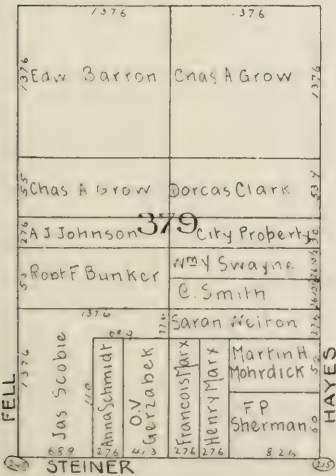 1376 1376
1376 Edw Barron Chas A Grow 1376
55 Chas A Grow Dorcas Clark 534
379
276 A J Johnson City Property 30
50 Robt F Bunker Wm Y Swayne
C. Smith
1376 Saran Weiron 276
1376 Jas Scobie
689
110 Anna Schmidt
O.V Gerzabek
Francois Marx
Henry Marx
Martin H Mohrdick 50
F P Sherman 60
FELL
HAYES
689 276 413 276 276 826
STEINER